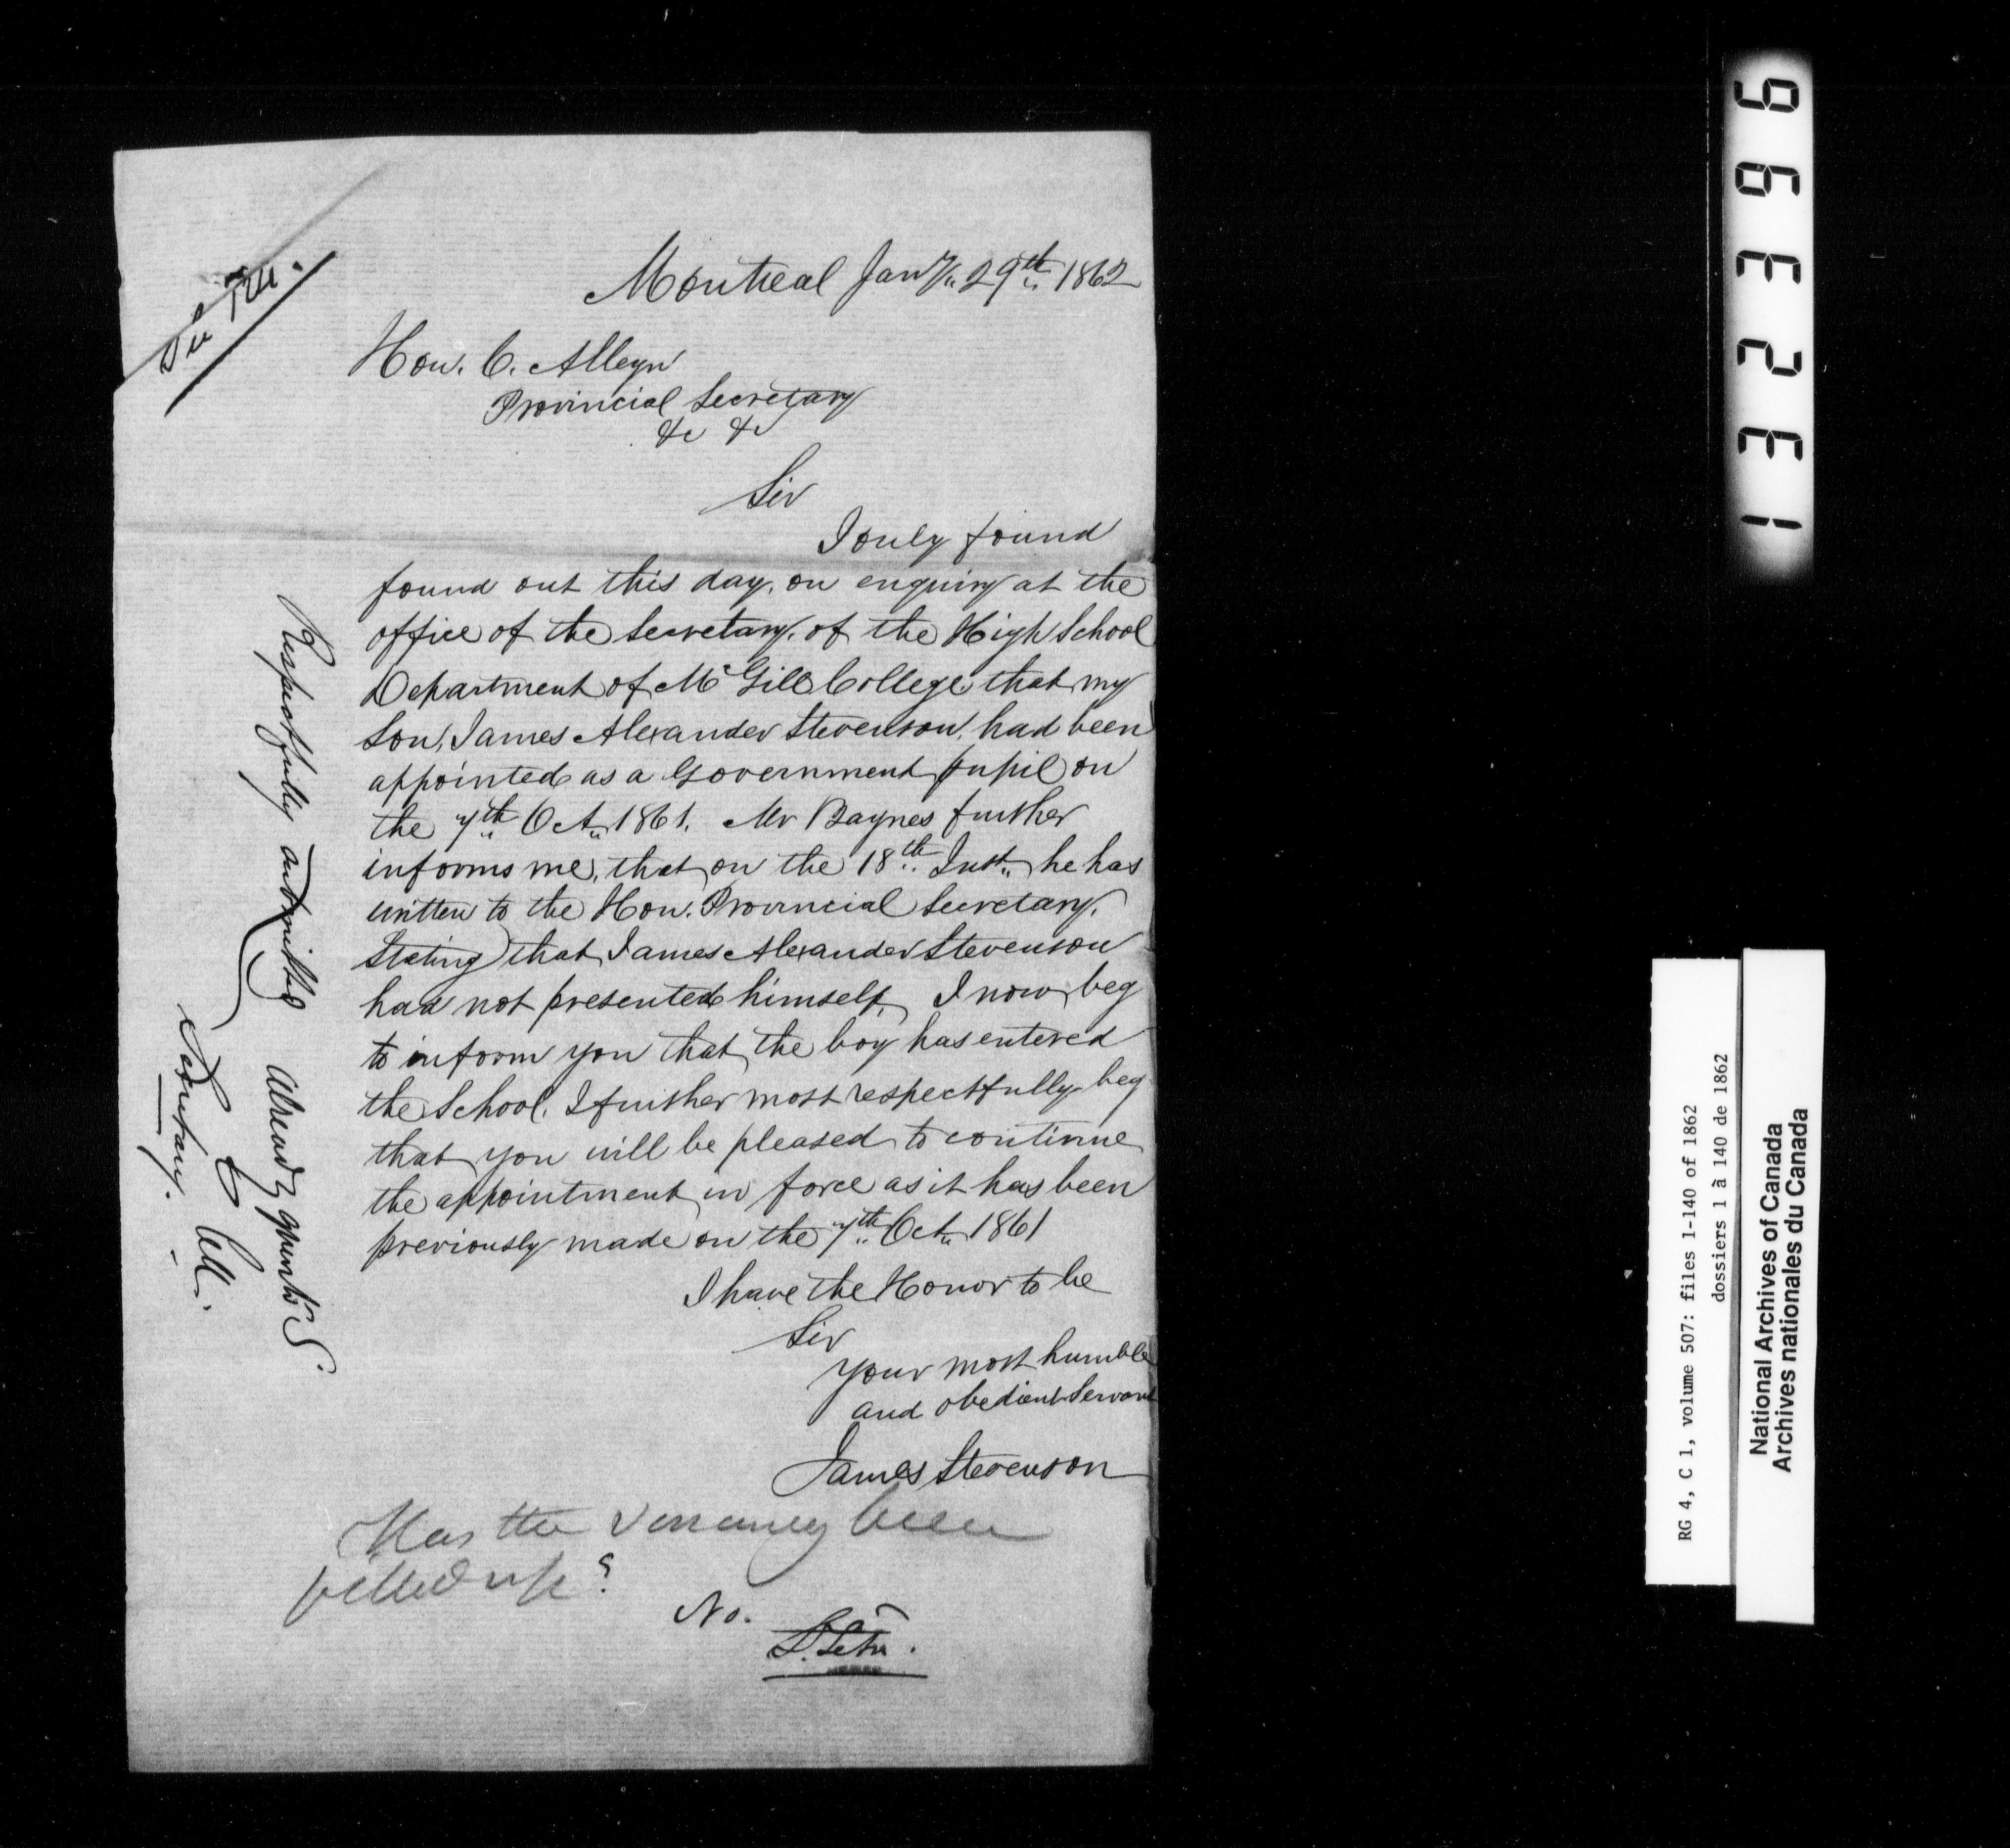 Montreal Jany 29th 1862
Hon. C. Alleyn
Provincial Secretary
&c &c
Sir
I only found
found out this day, on enquiry at the
office of the Secretary, of the High School
Department of McGill College that my
Son, James Alexander Stevenson, had been
appointed as a Government pupil on
the 7th Oct 1861. Mr Baynes further
informs me, that on the 18th Inst he has
written to the Hon. Provincial Secretary,
Stating that James Alexander Stevenson
had not presented himself, I now beg
to inform you that the boy has entered
the School. I further most respectfully beg
that you will be pleased to continue
the appointment in force as it has been
previously made on the 7th Oct 1861
I have the Honor to be
Sir
your most humble
and obedient Servant
James Stevenson
Has the vacancy been
filled up?
No.
Respectfully submitted
Already
Secretary.
132396
RG 4, C 1, volume 507: files 1-140 of 1862
dossiers 1 à 140 de 1862
National Archives of Canada
Archives nationales du Canada